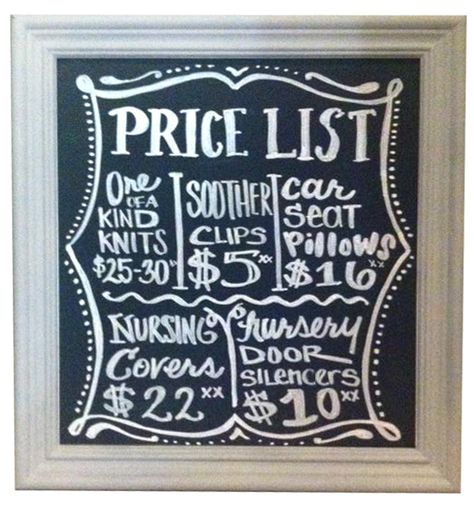 PRICE LIST
One
OF A
KIND
KNITS
$25-30"
SOOTHER
CLIPS
$5xx
car
SEAT
Pillows
$16xx
NURSING
Covers
$22xx
nursery
DOOR
SILENCERS
$10xx